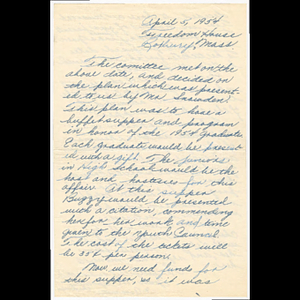 April 5, 1954
Freedom House
Roxbury, Mass.
The comittee met on the
above date, and decided on
the plan which was present-
ed to us by Mrs. Snowden.
This plan was to have a
buffet supper and program
in honor of the 1954 graduates
Each graduate would be present-
ed with a gift. The juniors
in High School would be the
hos and hostesses for this
affair. At this supper
Buggy would be presented
with a citation commending
her for her work and time
given to the youth Council.
The cost of the tickets will
be 35¢ per person.
Now we need funds for
this supper, so it was